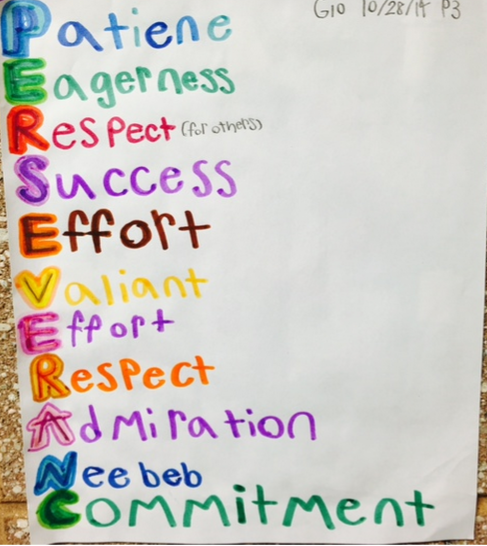 Gio 10/28/14 P3
Patiene
Eagerness
Respect (for others)
Success
Effort
Valiant
Effort
Respect
Admiration
Neebeb
Commitment